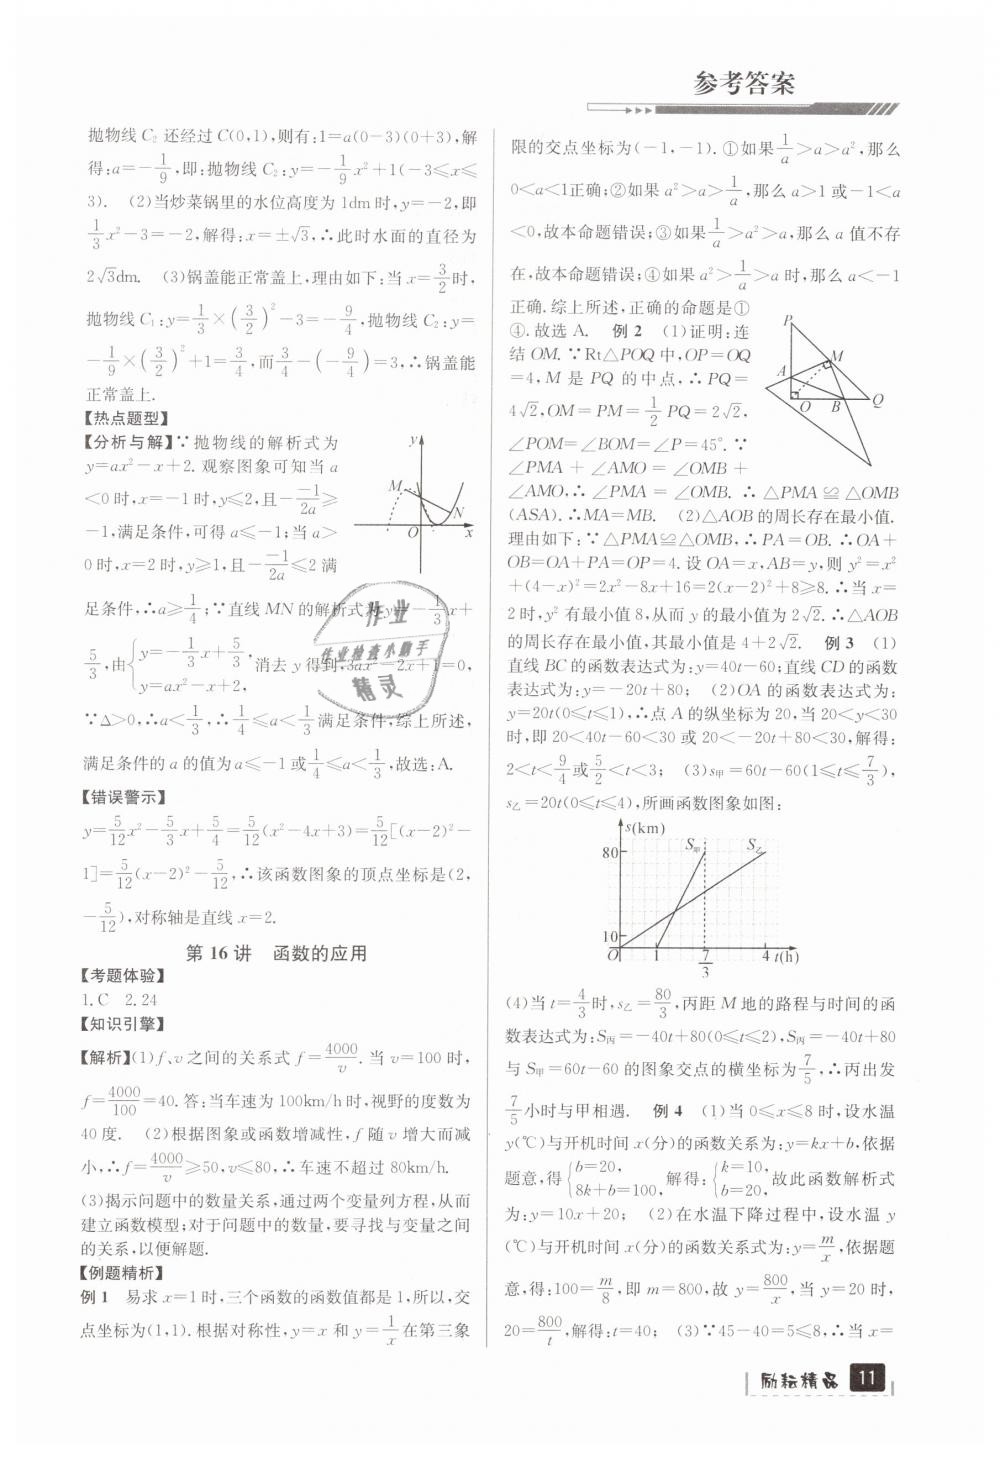 参考答案
抛物线 C₂ 还经过 C(0,1),则有:1=a(0-3)(0+3),解
得:a=-1/9,即:抛物线 C₂:y=-1/9x²+1(-3≤x≤
3). (2)当炒菜锅里的水位高度为 1dm 时,y=-2,即
1/3x²-3=-2,解得:x=±√3,∴此时水面的直径为
2√3dm. (3)锅盖能正常盖上,理由如下:当 x=3/2时,
抛物线 C₁:y=1/3×(3/2)²-3=-9/4,抛物线 C₂:y=
-1/9×(3/2)²+1=3/4,而3/4-(-9/4)=3,∴锅盖能
正常盖上.
【热点题型】
【分析与解】∵抛物线的解析式为
y=ax²-x+2.观察图象可知当 a
<0 时,x=-1 时,y≤2,且-(-1)/2a≥
-1,满足条件,可得 a≤-1;当 a>
0 时,x=2 时,y≥1,且-(-1)/2a≤2 满
y
M
N
O
x
足条件,∴a≥1/4;∵直线 MN 的解析式为 y=-1/3x+
5/3,由{y=-1/3x+5/3, y=ax²-x+2, 消去 y 得到,3ax²-2x+1=0,
∵Δ>0,∴a<1/3,∴1/4≤a<1/3满足条件,综上所述,
满足条件的 a 的值为 a≤-1 或1/4≤a<1/3,故选:A.
【错误警示】
y=5/12x²-5/3x+5/4=5/12(x²-4x+3)=5/12[(x-2)²-
1]=5/12(x-2)²-5/12,∴该函数图象的顶点坐标是(2,
-5/12),对称轴是直线 x=2.
第 16 讲 函数的应用
【考题体验】
1.C 2.24
【知识引擎】
【解析】(1)f、v 之间的关系式 f=4000/v.当 v=100 时,
f=4000/100=40.答:当车速为 100km/h 时,视野的度数为
40 度. (2)根据图象或函数增减性,f 随 v 增大而减
小,∴f=4000/v≥50,v≤80,∴车速不超过 80km/h.
(3)揭示问题中的数量关系,通过两个变量列方程,从而
建立函数模型;对于问题中的数量,要寻找与变量之间
的关系,以便解题.
【例题精析】
例 1 易求 x=1 时,三个函数的函数值都是 1,所以,交
点坐标为(1,1).根据对称性,y=x 和 y=1/x在第三象
限的交点坐标为(-1,-1).①如果1/a>a>a²,那么
0<a<1正确;②如果 a²>a>1/a,那么 a>1 或-1<a
<0,故本命题错误;③如果1/a>a²>a,那么 a 值不存
在,故本命题错误;④如果 a²>1/a>a 时,那么 a<-1
正确.综上所述,正确的命题是①
④.故选 A. 例 2 (1)证明:连
结 OM.∵Rt△POQ 中,OP=OQ
=4,M 是 PQ 的中点,∴PQ=
4√2,OM=PM=1/2PQ=2√2,
∠POM=∠BOM=∠P=45°.∵
∠PMA+∠AMO=∠OMB+
P
M
A
O
B
Q
∠AMO,∴∠PMA=∠OMB.∴△PMA≌△OMB
(ASA).∴MA=MB. (2)△AOB 的周长存在最小值.
理由如下:∵△PMA≌△OMB,∴PA=OB.∴OA+
OB=OA+PA=OP=4.设 OA=x,AB=y,则 y²=x²
+(4-x)²=2x²-8x+16=2(x-2)²+8≥8.∴当 x=
2 时,y² 有最小值 8,从而 y 的最小值为 2√2.∴△AOB
的周长存在最小值,其最小值是 4+2√2. 例 3 (1)
直线 BC 的函数表达式为:y=40t-60;直线 CD 的函数
表达式为:y=-20t+80; (2)OA 的函数表达式为:
y=20t(0≤t≤1),∴点 A 的纵坐标为 20,当 20<y<30
时,即 20<40t-60<30 或 20<-20t+80<30,解得:
2<t<9/4或5/2<t<3; (3)s甲=60t-60(1≤t≤7/3),
s乙=20t(0≤t≤4),所画函数图象如图:
s(km)
80
S甲
S乙
10
O
1
7/3
4
t(h)
(4)当 t=4/3时,s乙=80/3,丙距 M 地的路程与时间的函
数表达式为:S丙=-40t+80(0≤t≤2),S丙=-40t+80
与 S甲=60t-60 的图象交点的横坐标为7/5,∴丙出发
7/5小时与甲相遇. 例 4 (1)当 0≤x≤8 时,设水温
y(℃)与开机时间 x(分)的函数关系为:y=kx+b,依据
题意,得{b=20, 8k+b=100, 解得:{k=10, b=20, 故此函数解析式
为:y=10x+20; (2)在水温下降过程中,设水温 y
(℃)与开机时间 x(分)的函数关系式为:y=m/x,依据题
意,得:100=m/8,即 m=800,故 y=800/x,当 y=20 时,
20=800/t,解得:t=40; (3)∵45-40=5≤8,∴当 x=
作业
作业检查小助手
精灵
励耘精品 11